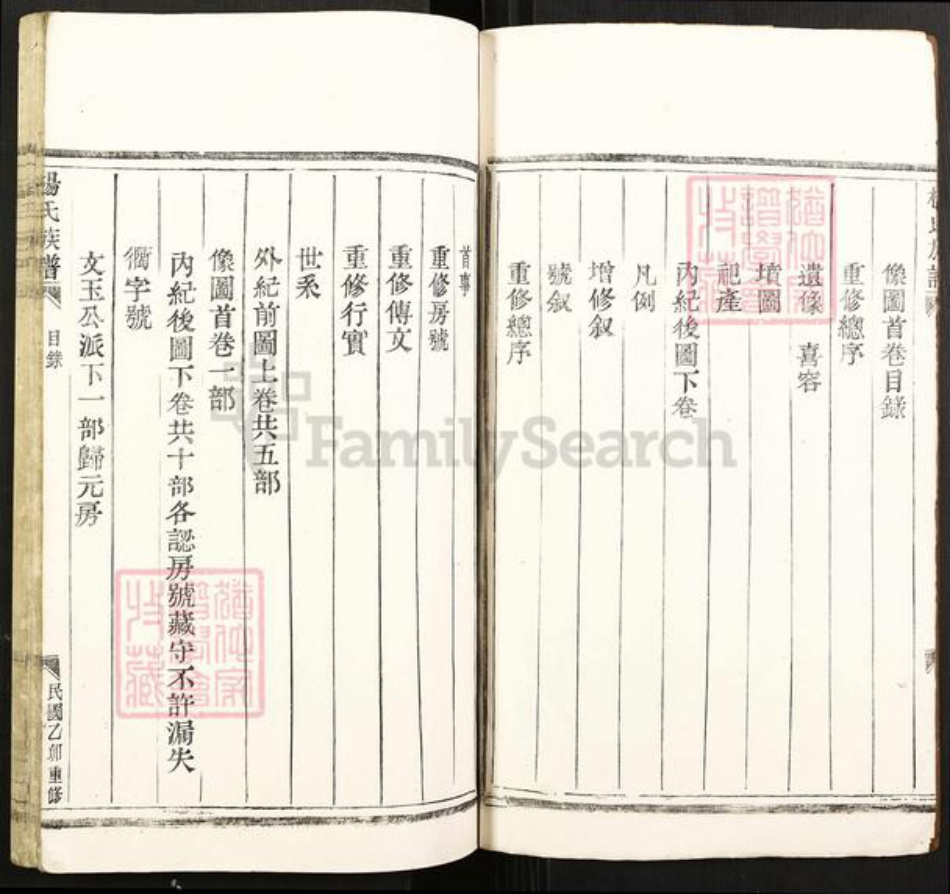 像圖首卷目錄
重修總序
遺像　喜容
墳圖
祀產
內紀後圖下卷
凡例
增修叙
號叙
重修總序
首事
重修房號
重修傳文
重修行實
世系
外紀前圖上卷共五部
像圖首卷一部
內紀後圖下卷共十部各認房號藏守不許漏失
衕字號
文玉公派下一部歸元房
楊氏族譜
目錄
民國乙卯重修
FamilySearch